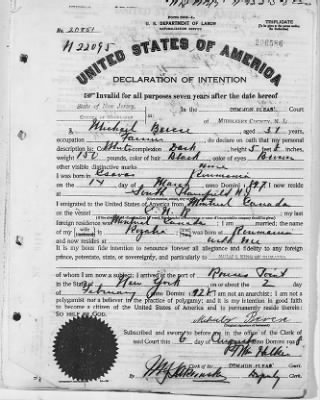 U. S. DEPARTMENT OF LABOR
NATURALIZATION SERVICE
TRIPLICATE
No. 20851
UNITED STATES OF AMERICA
DECLARATION OF INTENTION
Invalid for all purposes seven years after the date hereof
State of New Jersey,
County of Middlesex
In the COMMON PLEAS Court
of MIDDLESEX COUNTY, N. J.
I, Michail, aged 31 years,
occupation, do declare on oath that my personal
description is: White, complexion Dark, height 5 feet 8 inches,
weight 150 pounds, color of hair Black, color of eyes Brown
other visible distinctive marks none
I was born in Roumania
on the 14 day of March, anno Domini 1897; I now reside
at South Plainfield N.J.
I emigrated to the United States of America from Montreal Canada
on the vessel; my last
foreign residence was Montreal Canada; I am married; the name
of my wife is; she was born at Roumania
and now resides at with me
It is my bona fide intention to renounce forever all allegiance and fidelity to any foreign
prince, potentate, state, or sovereignty, and particularly to
of whom I am now a subject; I arrived at the port of Rouses Point
in the State of New York, on or about the 2 day
of February, anno Domini 1928; I am not an anarchist; I am not a
polygamist nor a believer in the practice of polygamy; and it is my intention in good faith
to become a citizen of the United States of America and to permanently reside therein:
SO HELP ME GOD.
Subscribed and sworn to before me in the office of the Clerk of
said Court this 6 day of August, anno Domini 1928
Clerk of the COMMON PLEAS Court.
By, Deputy Clerk.